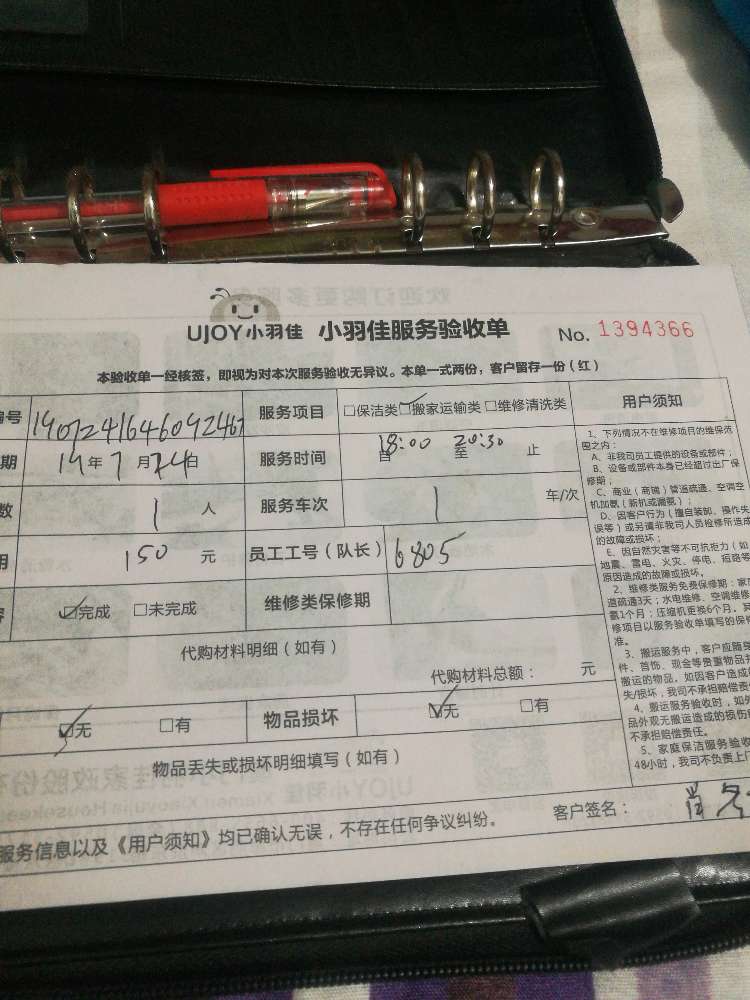 UJOY小羽佳 小羽佳服务验收单 No. 1394366
本验收单一经核签，即视为对本次服务验收无异议。本单一式两份，客户留存一份（红）
编号 服务项目 □保洁类 ☑搬家运输类 □维修清洗类 用户须知
期 19年7月24日 服务时间 自18:00 至20:30 止
数 1 人 服务车次 1 车/次
用 150 元 员工工号（队长） 6805
☑完成 □未完成 维修类保修期
代购材料明细（如有）
代购材料总额： 元
☑无 □有 物品损坏 ☑无 □有
物品丢失或损坏明细填写（如有）
服务信息以及《用户须知》均已确认无误，不存在任何争议纠纷。 客户签名：
1、下列情况不在维修项目的维保范
围之内：
A、非我司员工提供的设备或部件；
B、设备或部件本身已经超过出厂保
修期；
C、商业（商铺）管道疏通、空调空
机加氟（新机或漏氟）；
D、因客户行为（擅自装卸、操作失
误等）或另请非我司人员检修所造成
的故障或损坏；
E、因自然灾害等不可抗拒力（如
地震、雷电、火灾、停电、短路等
原因造成的故障或损坏。
2、维修类服务免费保修期：家
道疏通3天；水电维修、空调维修
氟1个月；压缩机更换6个月。其
修项目以服务验收单填写的保修
准。
3、搬运服务中，客户应随身
件、首饰、现金等贵重物品并
搬运的物品。如因客户造成的
失/损坏，我司不承担赔偿责
4、搬运服务验收时，如外
品外观无搬运造成的损伤
不承担赔偿责任。
5、家庭保洁服务验收
48小时，我司不负责上门